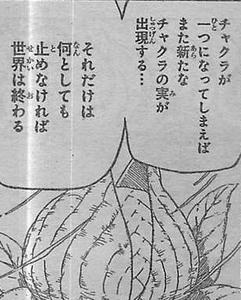 チャクラが
一つになってしまえば
また新たな
チャクラの実が
出現する…
それだけは
何としても
止めなければ
世界は終わる